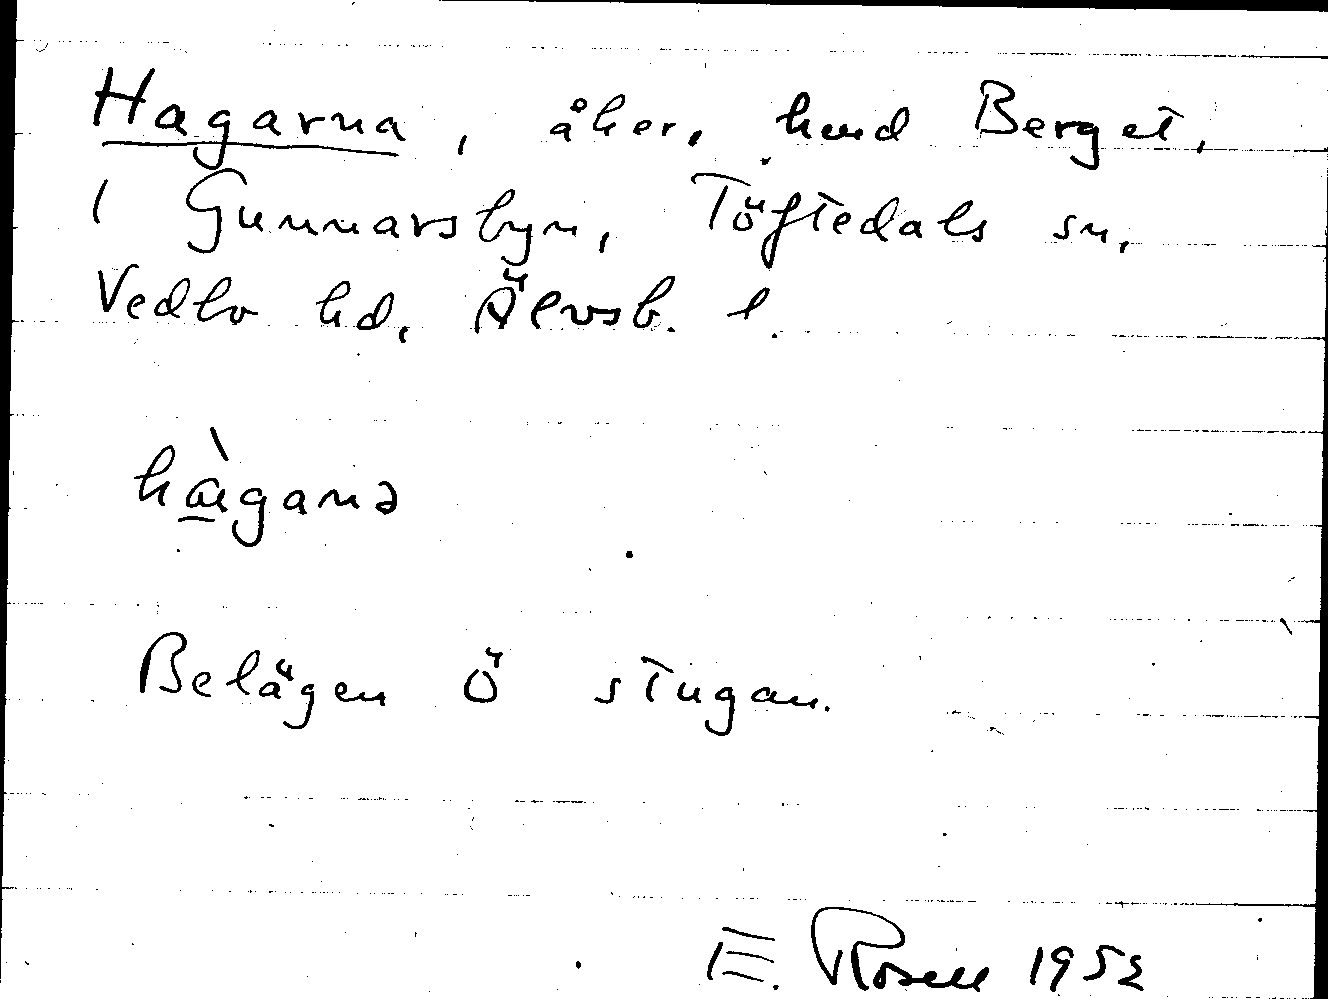 Hagarna, åker, hmd Berget,
i Gunnarsbyn, Töftedals sn,
Vedbo hd, Älvsb. l.
hàganə
Belägen ö stugan.
E. Rosell 1952